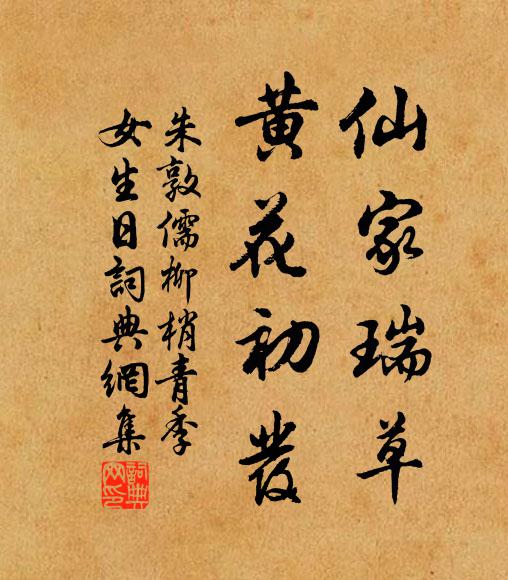 仙家瑞草
黄花初發
朱敦儒柳梢青季
女生日詞典網集
詞典網印